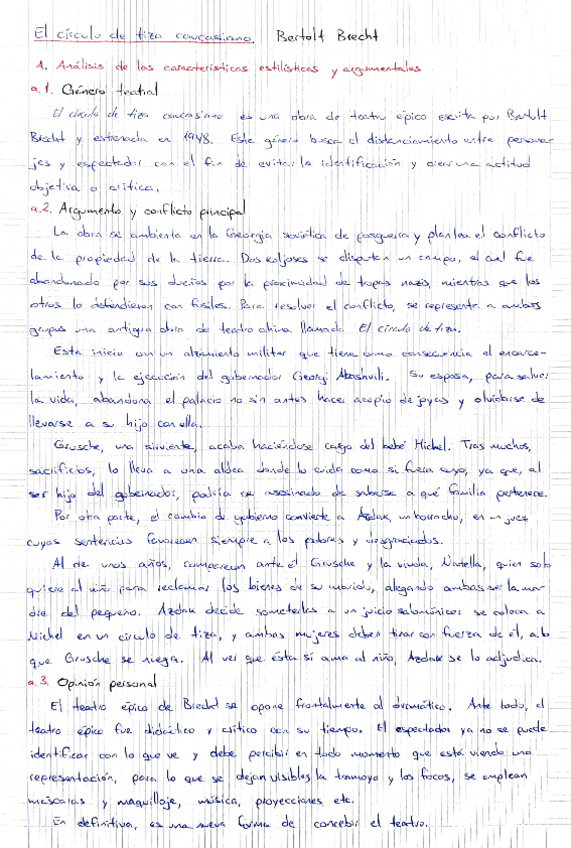 El círculo de tiza caucasiano. Bertolt Brecht
A. Análisis de las características estilísticas y argumentales
a.1. Género teatral
El círculo de tiza caucasiano es una obra de teatro épico escrita por Bertolt
Brecht y estrenada en 1948. Este género busca el distanciamiento entre persona-
jes y espectador con el fin de evitar la identificación y crear una actitud
objetiva o crítica.
a.2. Argumento y conflicto principal
La obra se ambienta en la Georgia soviética de posguerra y plantea el conflicto
de la propiedad de la tierra. Dos koljoses se disputan un campo, el cual fue
abandonado por sus dueños por la proximidad de tropas nazis, mientras que los
otros lo defendieron con fusiles. Para resolver el conflicto, se representa a ambos
grupos una antigua obra de teatro china llamada El círculo de tiza.
Esta inicia con un alzamiento militar que tiene como consecuencia el encarce-
lamiento y la ejecución del gobernador Georgi Abashvili. Su esposa, para salvar
la vida, abandona el palacio no sin antes hacer acopio de joyas y olvidarse de
llevarse a su hijo con ella.
Grusche, una sirvienta, acaba haciéndose cargo del bebé Michel. Tras muchos,
sacrificios, lo lleva a una aldea donde lo cuida como si fuera suyo, ya que, al
ser hijo del gobernador, podría ser asesinado de saberse a qué familia pertenece.
Por otra parte, el cambio de gobierno convierte a Azdak, un borracho, en un juez
cuyas sentencias favorecen siempre a los pobres y desgraciados.
Al de unos años, comparecen ante él Grusche y la viuda, Natella, quien solo
quiere al niño para reclamar los bienes de su marido, alegando ambas ser la ma-
dre del pequeño. Azdak decide someterlas a un juicio salomónico: se coloca a
Michel en un círculo de tiza, y ambas mujeres deben tirar con fuerza de él, a lo
que Grusche se niega. Al ver que ésta sí ama al niño, Azdak se lo adjudica.
a.3. Opinión personal
El teatro épico de Brecht se opone frontalmente al dramático. Ante todo, el
teatro épico fue didáctico y crítico con su tiempo. El espectador ya no se puede
identificar con lo que ve y debe percibir en todo momento que está viendo una
representación, para lo que se dejan visibles la tramoya y los focos, se emplean
máscaras y maquillaje, música, proyecciones etc.
En definitiva, es una nueva forma de concebir el teatro.